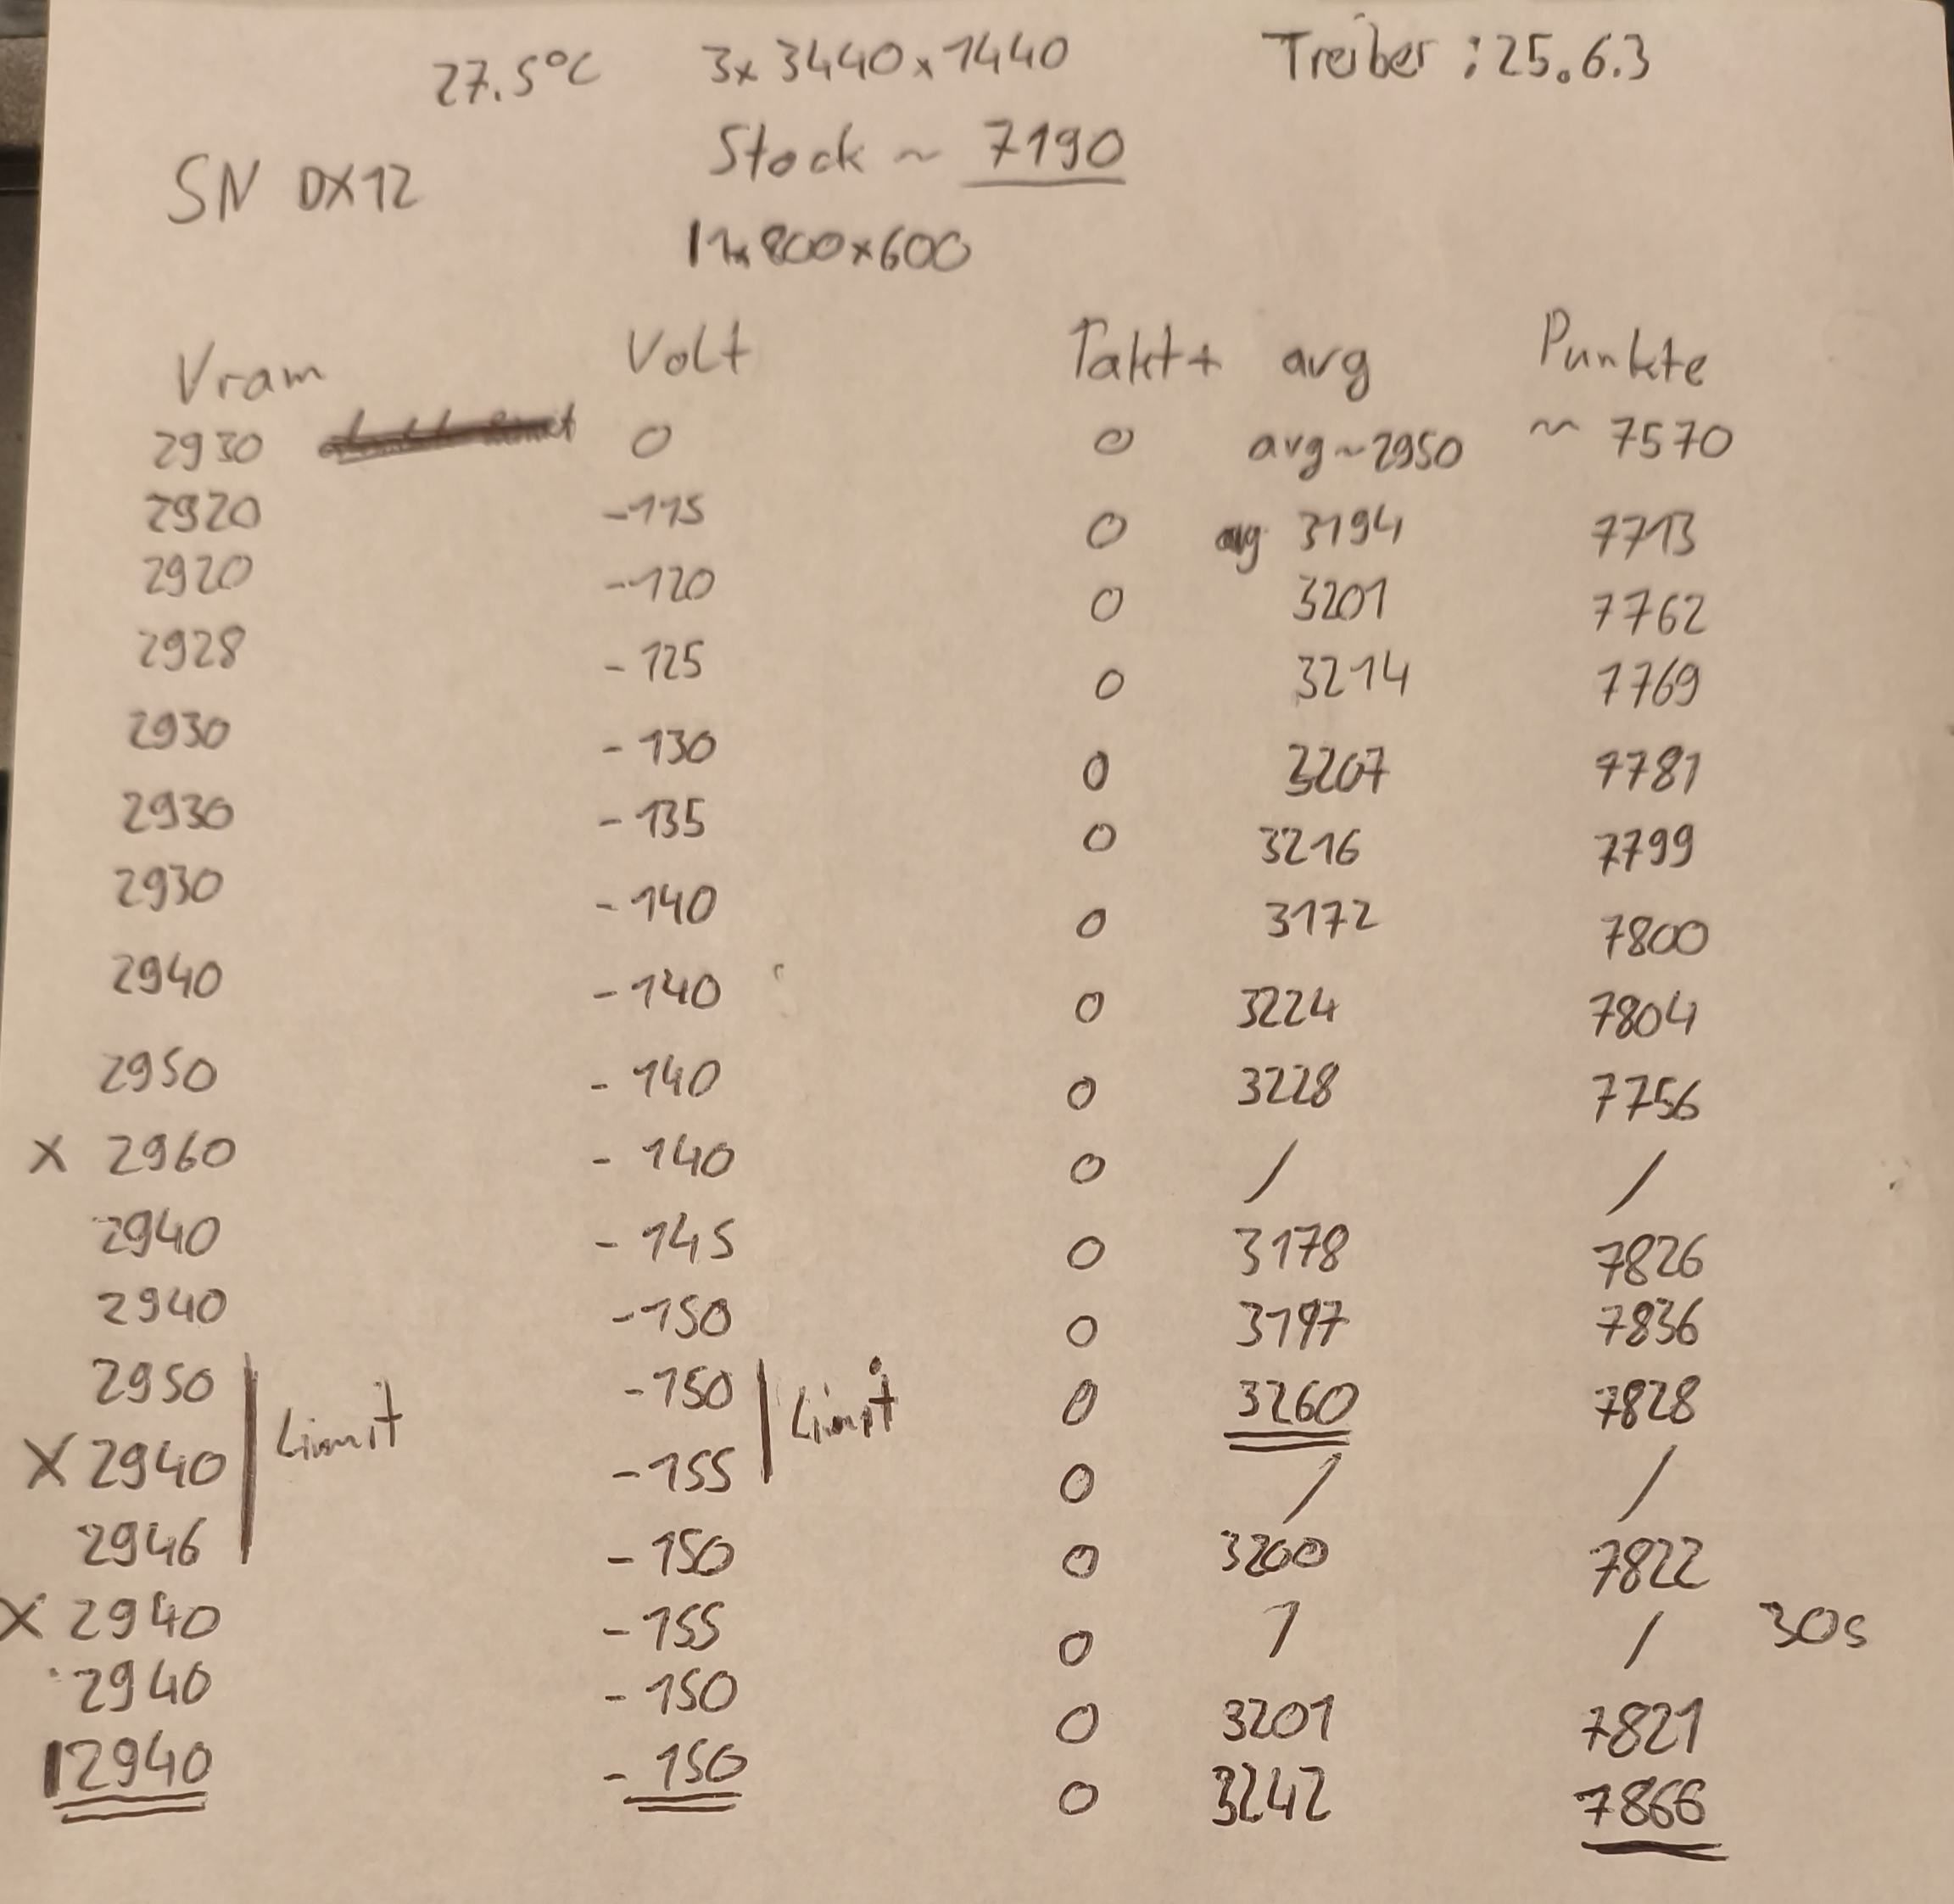 27.5°C 3x 3440x1440 Treiber : 25.6.3
Stock ~ 7190
SN DX12
1x800x600
Vram Volt Takt+ avg Punkte
2930 0 0 avg~2950 ~ 7570
2920 -115 0 avg 3194 7713
2920 -120 0 3201 7762
2928 -125 0 3214 7769
2930 -130 0 3207 7781
2930 -135 0 3216 7799
2930 -140 0 3172 7800
2940 -140 0 3224 7804
2950 -140 0 3228 7756
X 2960 -140 0 / /
2940 -145 0 3178 7826
2940 -150 0 3197 7836
2950 Limit -150 Limit 0 3260 7828
X 2940 -155 0 / /
2946 -150 0 3200 7822
X 2940 -155 0 / / 30s
2940 -150 0 3201 7821
2940 -150 0 3242 7866